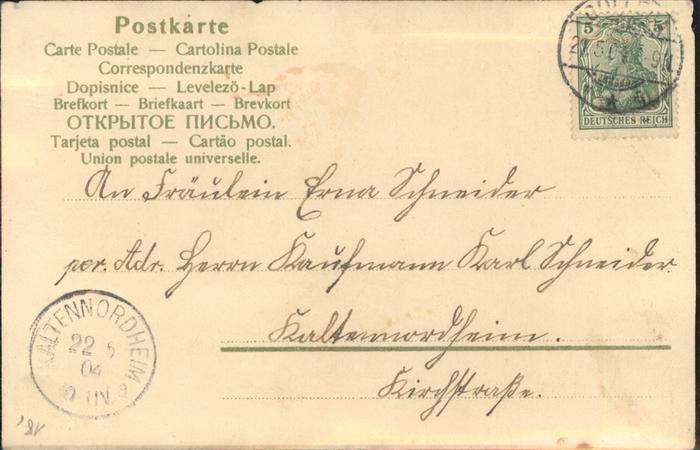 Postkarte
Carte Postale — Cartolina Postale
Correspondenzkarte
Dopisnice — Levelező-Lap
Brefkort — Briefkaart — Brevkort
ОТКРЫТОЕ ПИСЬМО.
Tarjeta postal — Cartão postal.
Union postale universelle.
5
DEUTSCHES REICH
An Fräulein Erna Schneider
per. Adr. Herrn Kaufmann Karl Schneider
Kaltennordheim.
Kirchstraße.
KALTENNORDHEIM
22 5
04